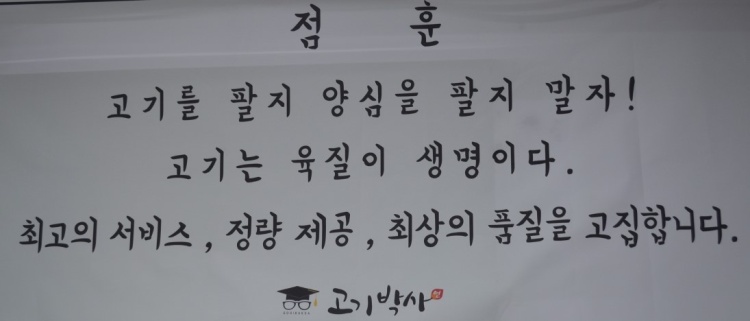 점 훈
고기를 팔지 양심을 팔지 말자!
고기는 육질이 생명이다.
최고의 서비스, 정량 제공, 최상의 품질을 고집합니다.
고기박사